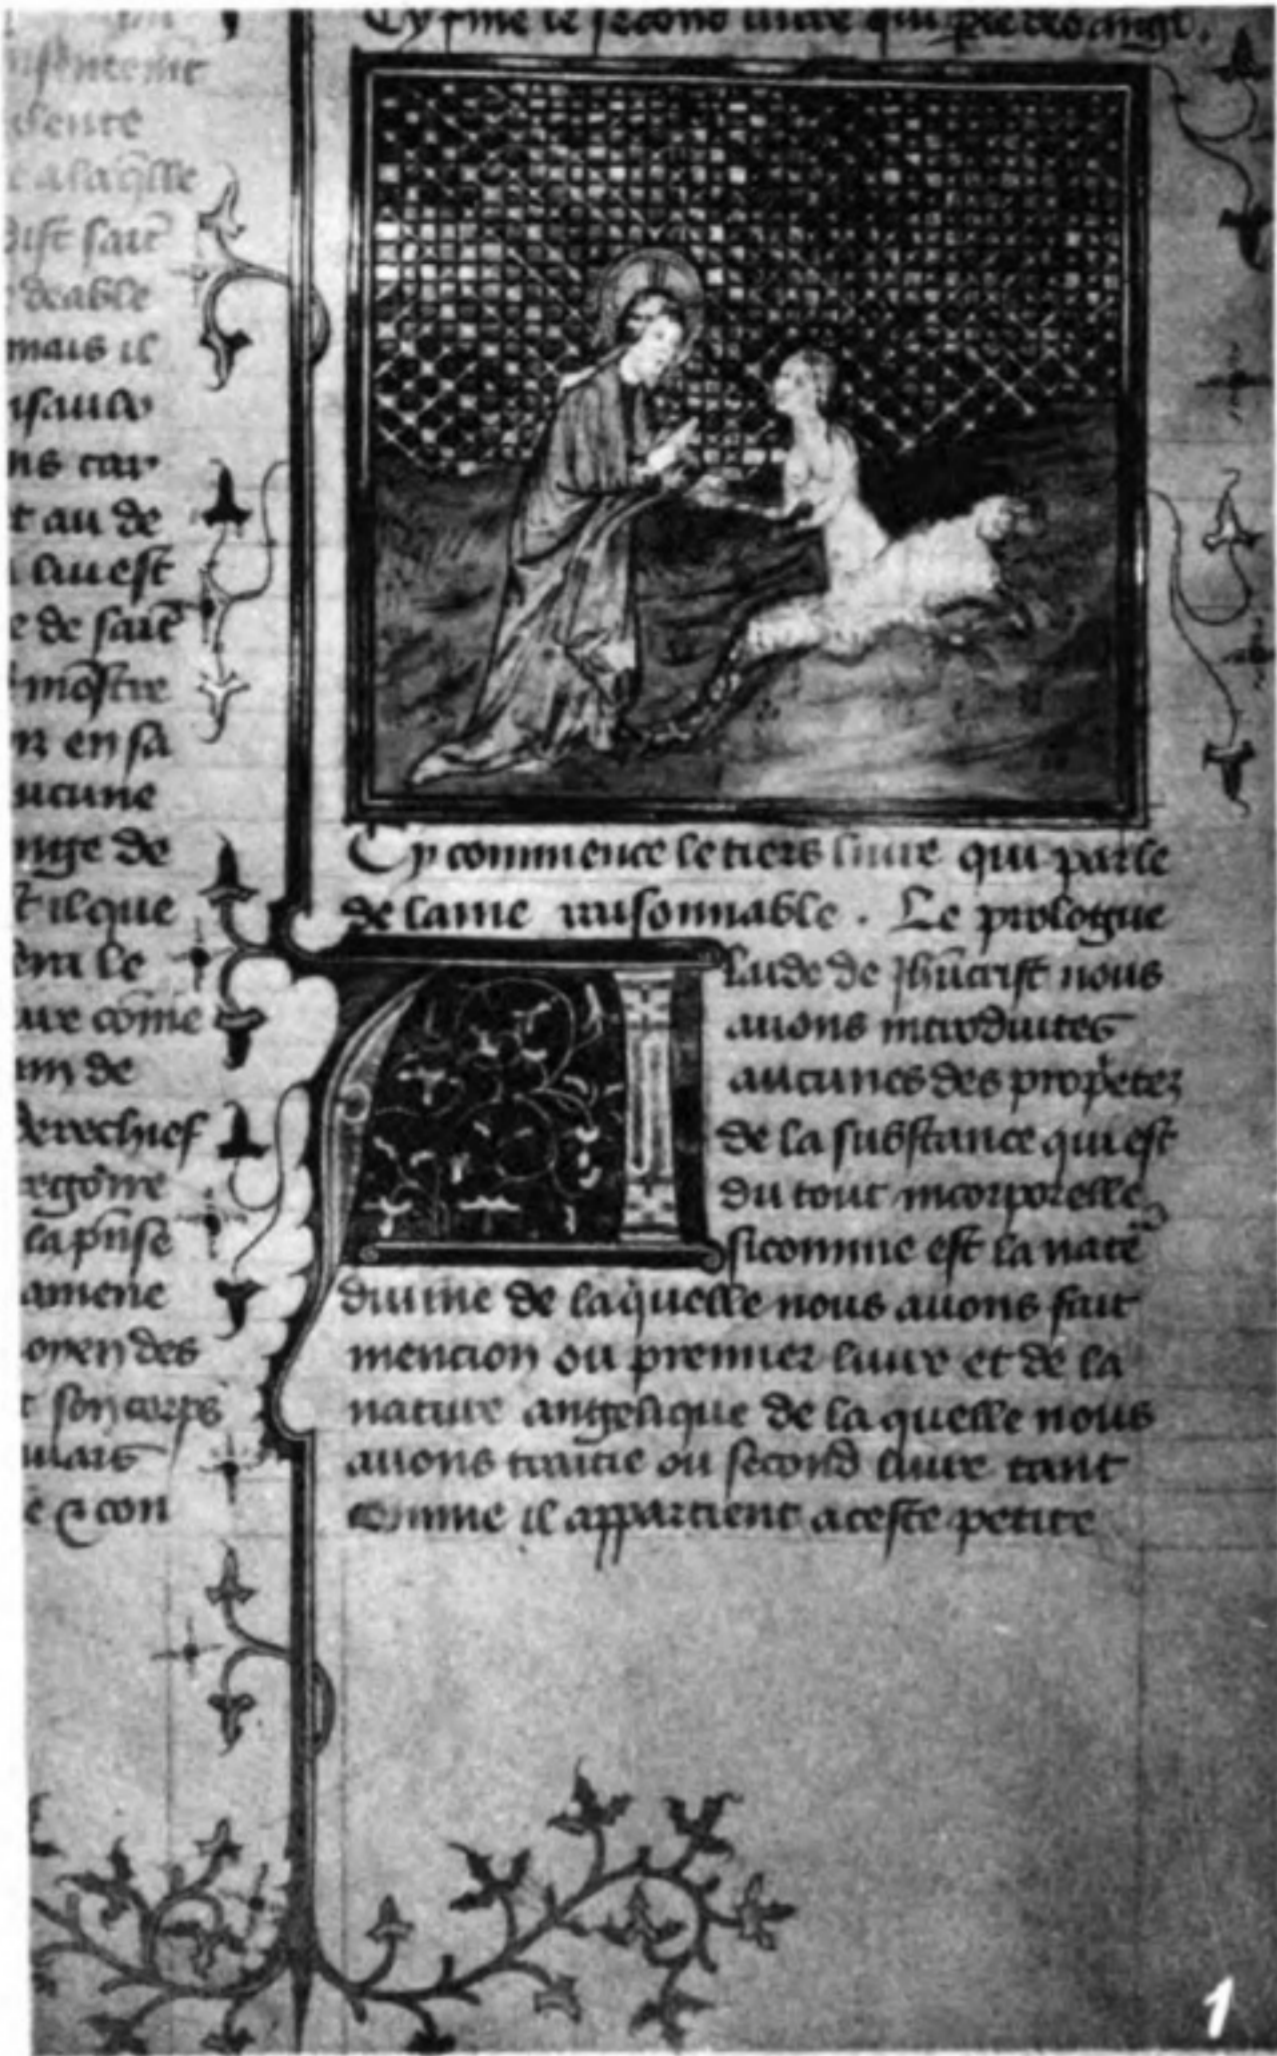 usentemt
dente
e a laq̃lle
dist sait
deable
mais il
ns car
t au de
lui est
e de sait̃
mõstre
n en sa
aucune
ange de
t il que
ent le
ure cõme
de
derechief
regõire
la p̃nse
amene
oyen des
t son corps
e ⁊ con
Cy fine le second liure qui p̃le des angl̃.
Cy commence le tiers liure qui parle
de lame raisonnable. Le prologue
A Laide de jhũcrist nous
auons introduites
aucunes des prop̃etez
de la substance qui est
du tout incorporelle
sicomme est la natẽ
diuine de laquelle nous auons fait
mencion ou premier liure et de la
nature angelique de la quelle nous
auons traitie ou second liure tant
comme il appartient a ceste petite
1